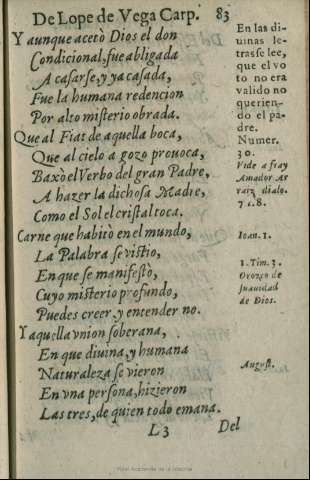 De Lope de Vega Carp. 83
Y aunque acetò Dios el don
Condicional, fue abligada
A casarse, y ya casada,
Fue la humana redencion
Por alto misterio obrada.
Que al Fiat de aquella boca,
Que al cielo a gozo prouoca,
Baxò el Verbo del gran Padre,
A hazer la dichosa Madre,
Como el Sol el cristal toca.
Carne que habitò en el mundo,
La Palabra se vistio,
En que se manifestò,
Cuyo misterio profundo,
Puedes creer, y entender no.
Y aquella vnion soberana,
En que diuina, y humana
Naturaleza se vieron
En vna persona, hizieron
Las tres, de quien todo emana.
L 3 Del
En las di-
uinas le-
tras se lee,
que el vo
to no era
valido no
querien-
do el pa-
dre.
Numer.
30.
Vide a fray
Amador Ar
raiz dialo.
7 c. 8.
Ioan. 1.
1. Tim. 3.
Orozco de
Suauidad
de Dios.
August.
Real Academia de la Historia